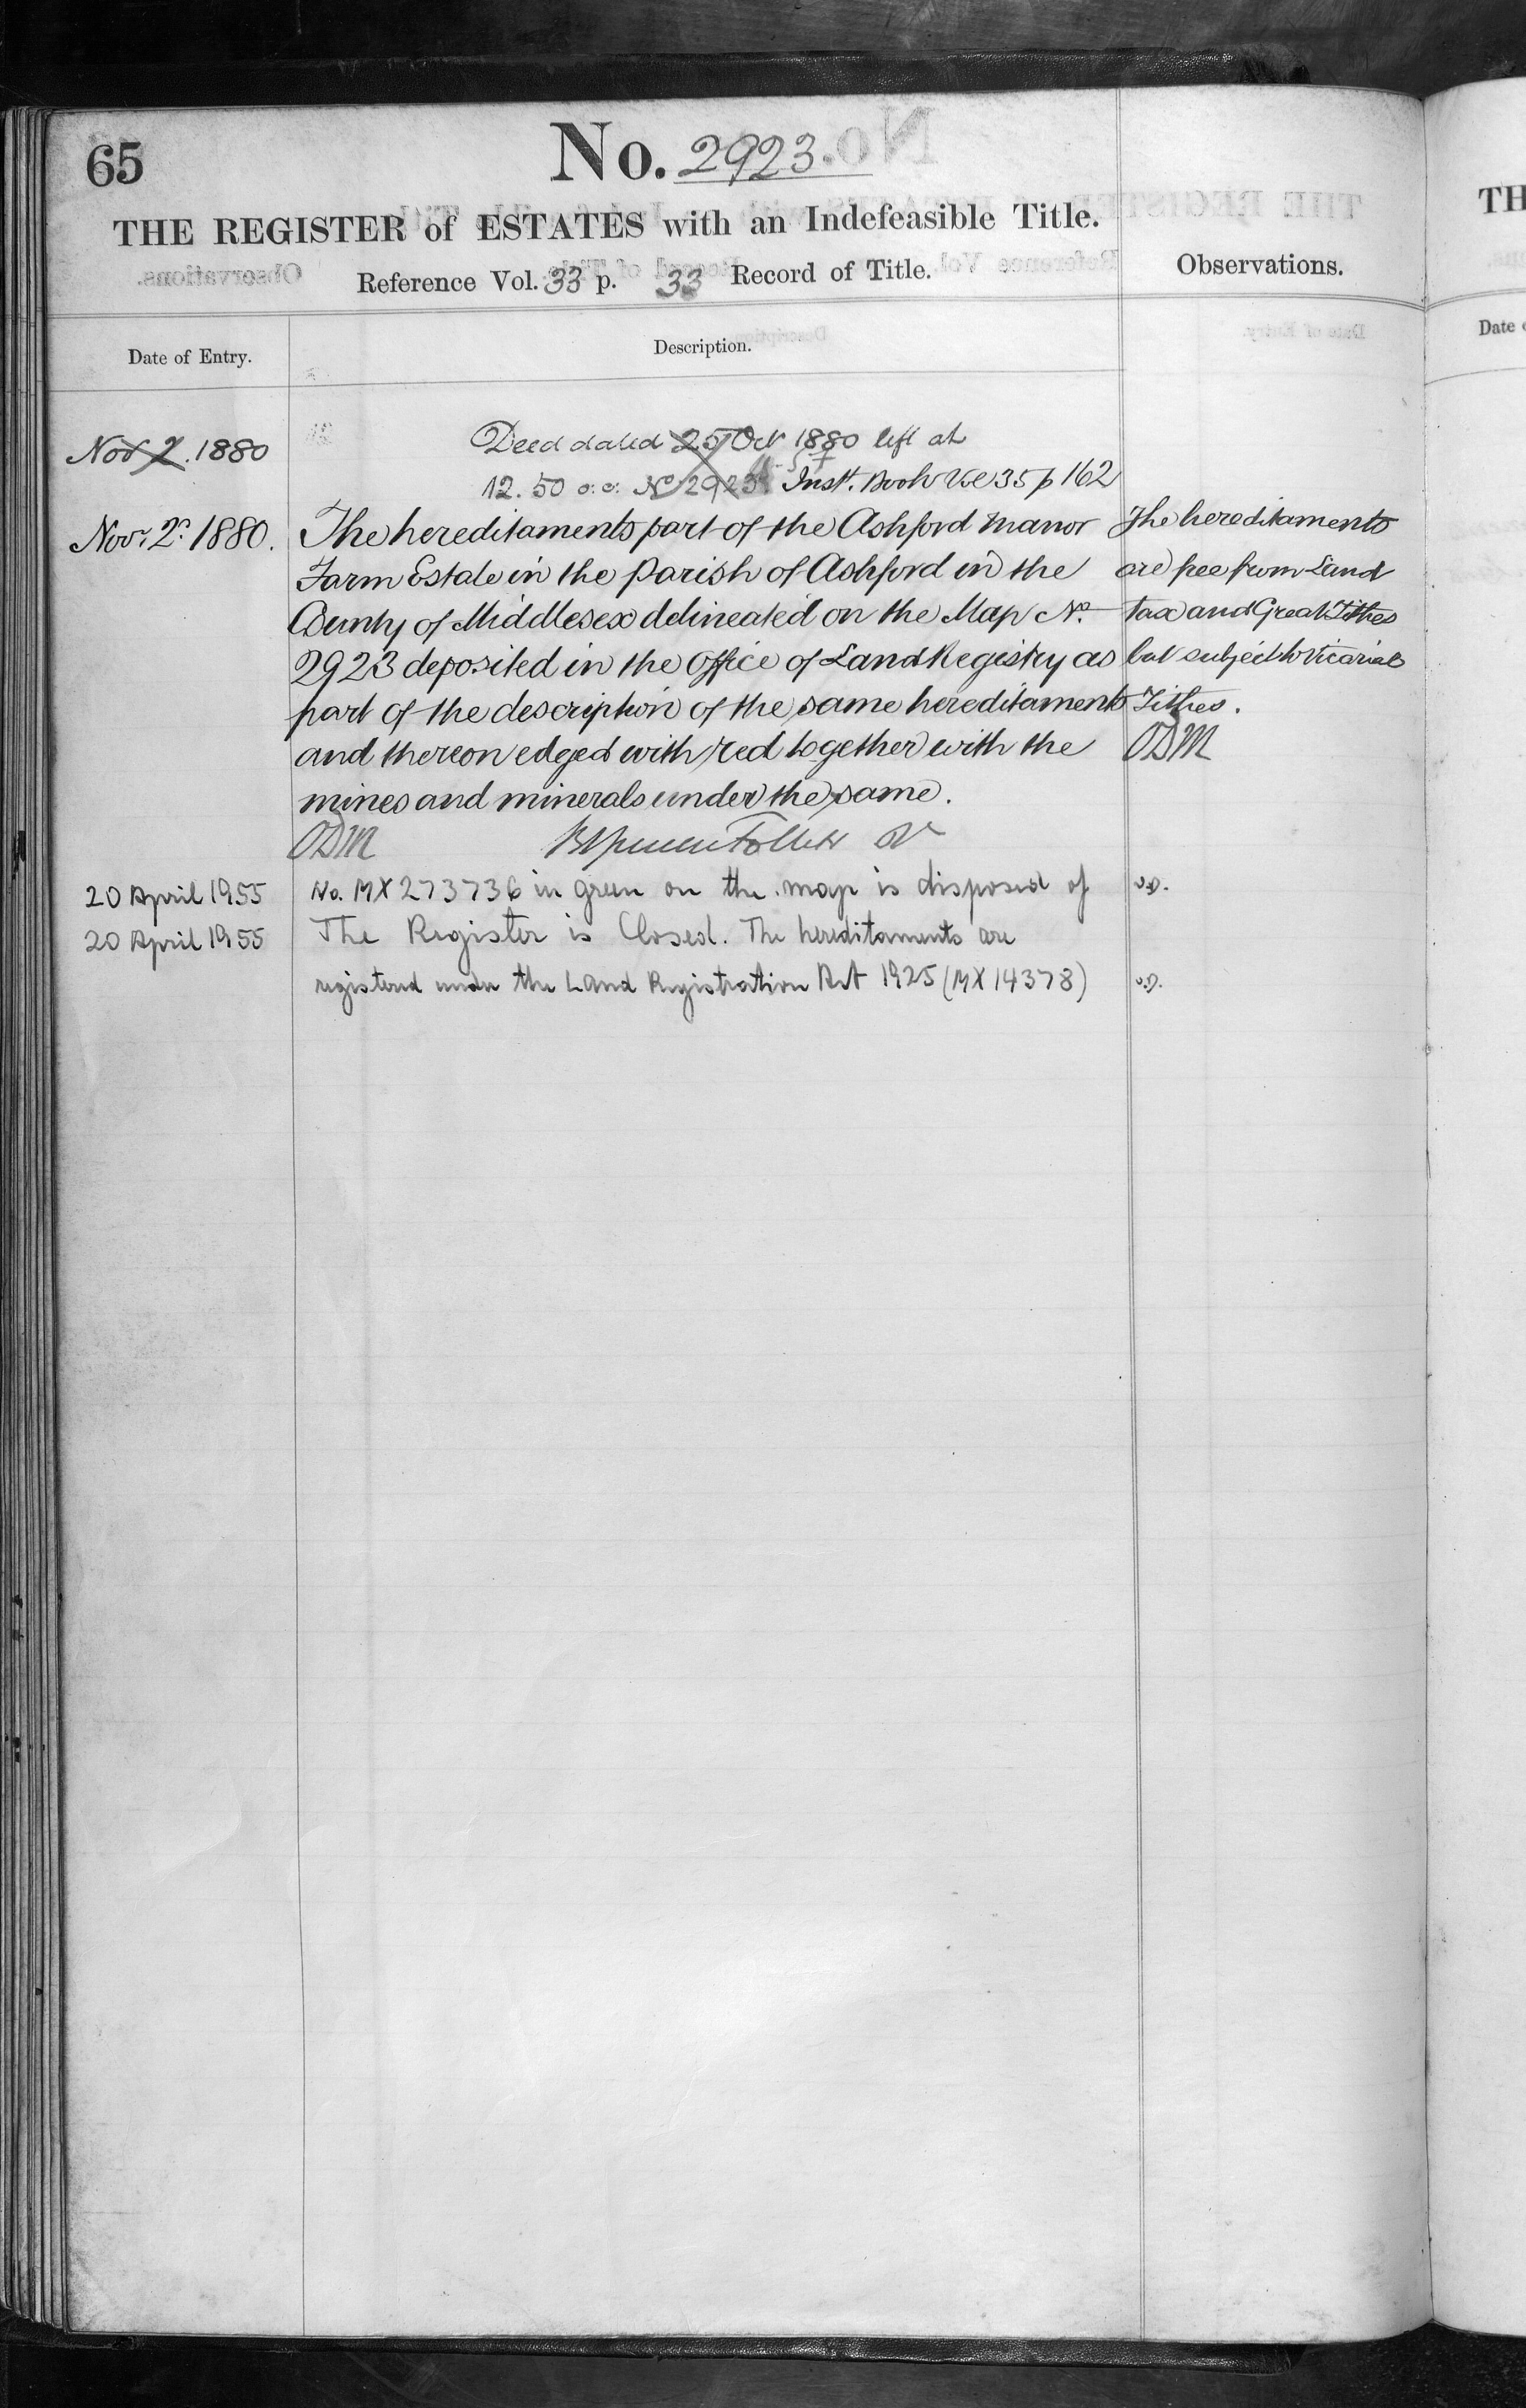 65
No. 2923.
THE REGISTER of ESTATES with an Indefeasible Title.
Reference Vol. 33 p. 33 Record of Title.
Observations.
Date of Entry.
Description.
Nov 2. 1880
Deed dated 25 Oct 1880 left at
12. 50 o.c. No 2923 Inst. Book Vol 35 p 162
Novr. 2d. 1880.
The hereditaments part of the Ashford Manor
Farm Estate in the Parish of Ashford in the
County of Middlesex delineated on the Map No.
2923 deposited in the Office of Land Registry as
part of the description of the same hereditaments
and thereon edged with red together with the
mines and minerals under the same.
ODM
The hereditaments
are free from Land
Tax and Great Tithes
but subject to Vicarial
Tithes.
ODM
20 April 1955
No. MX273736 in green on the map is disposed of
20 April 1955
The Register is Closed. The hereditaments are
registered under the Land Registration Act 1925 (MX14378)
TH
Date